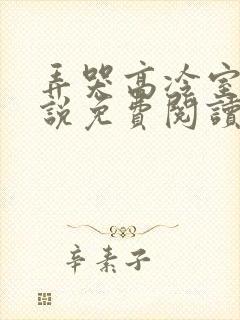 弄哭高冷室
說免費閱讀
辛素子